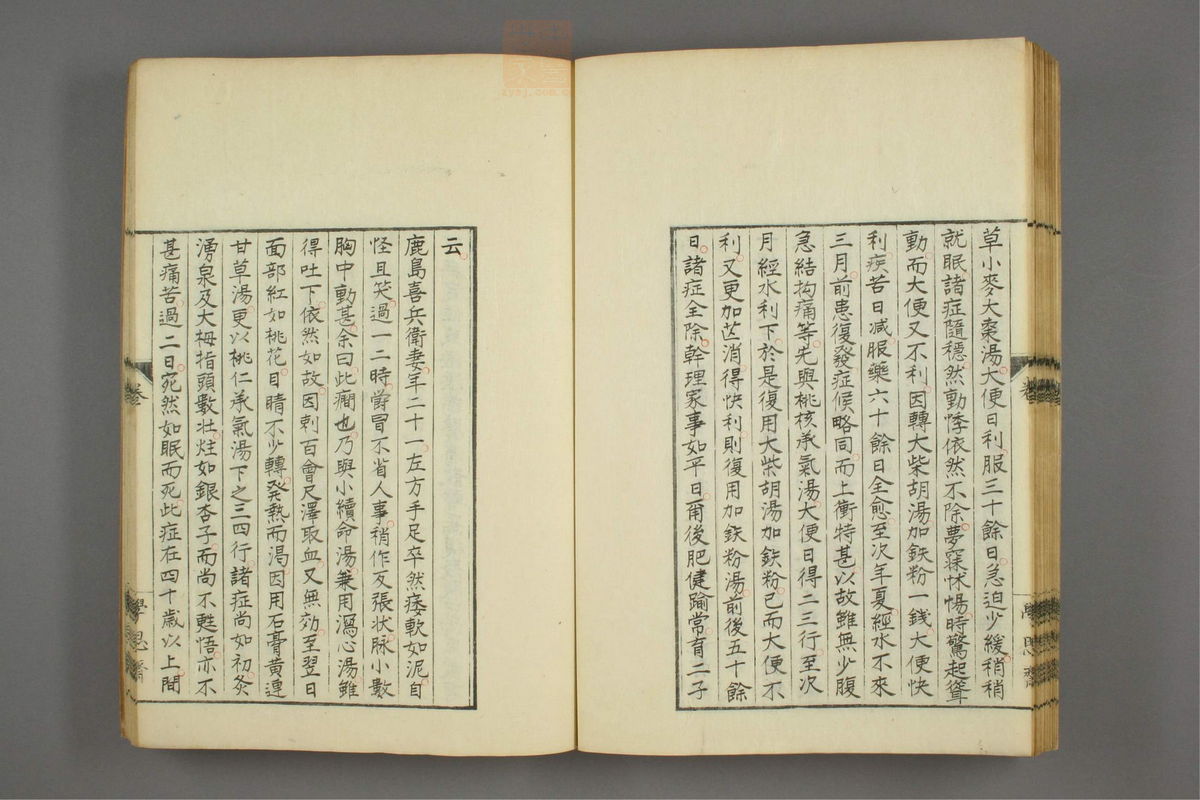 草小麥大棗湯大便日利服三十餘日急迫少緩稍稍
就眠諸症隨穩然動悸依然不除夢寐怵惕時驚起聳
動而大便又不利因轉大柴胡湯加鉄粉一錢大便快
利疾苦日减服藥六十餘日全愈至次年夏經水不來
三月前患復發症候略同而上衝特甚以故雖無少腹
急結拘痛等先與桃核承氣湯大便日得二三行至次
月經水利下於是復用大柴胡湯加鉄粉已而大便不
利又更加芒消得快利則復用加鉄粉湯前後五十餘
日諸症全除幹理家事如平日爾後肥健踰常育二子
云
鹿島喜兵衛妻年二十一左方手足卒然痿軟如泥自
怪且笑過一二時欝冒不省人事稍作反張状脉小數
胸中動甚余曰此癇也乃與小續命湯兼用瀉心湯雖
得吐下依然如故因刺百會尺澤取血又無効至翌日
面部紅如桃花目睛不少轉発熱而渴因用石膏黄連
甘草湯更以桃仁承氣湯下之三四行諸症尚如初灸
湧泉及大拇指頭數壮炷如銀杏子而尚不甦悟亦不
甚痛苦過二日死然如眠而死此症在四十歳以上間
卷
學思齋
八
卷